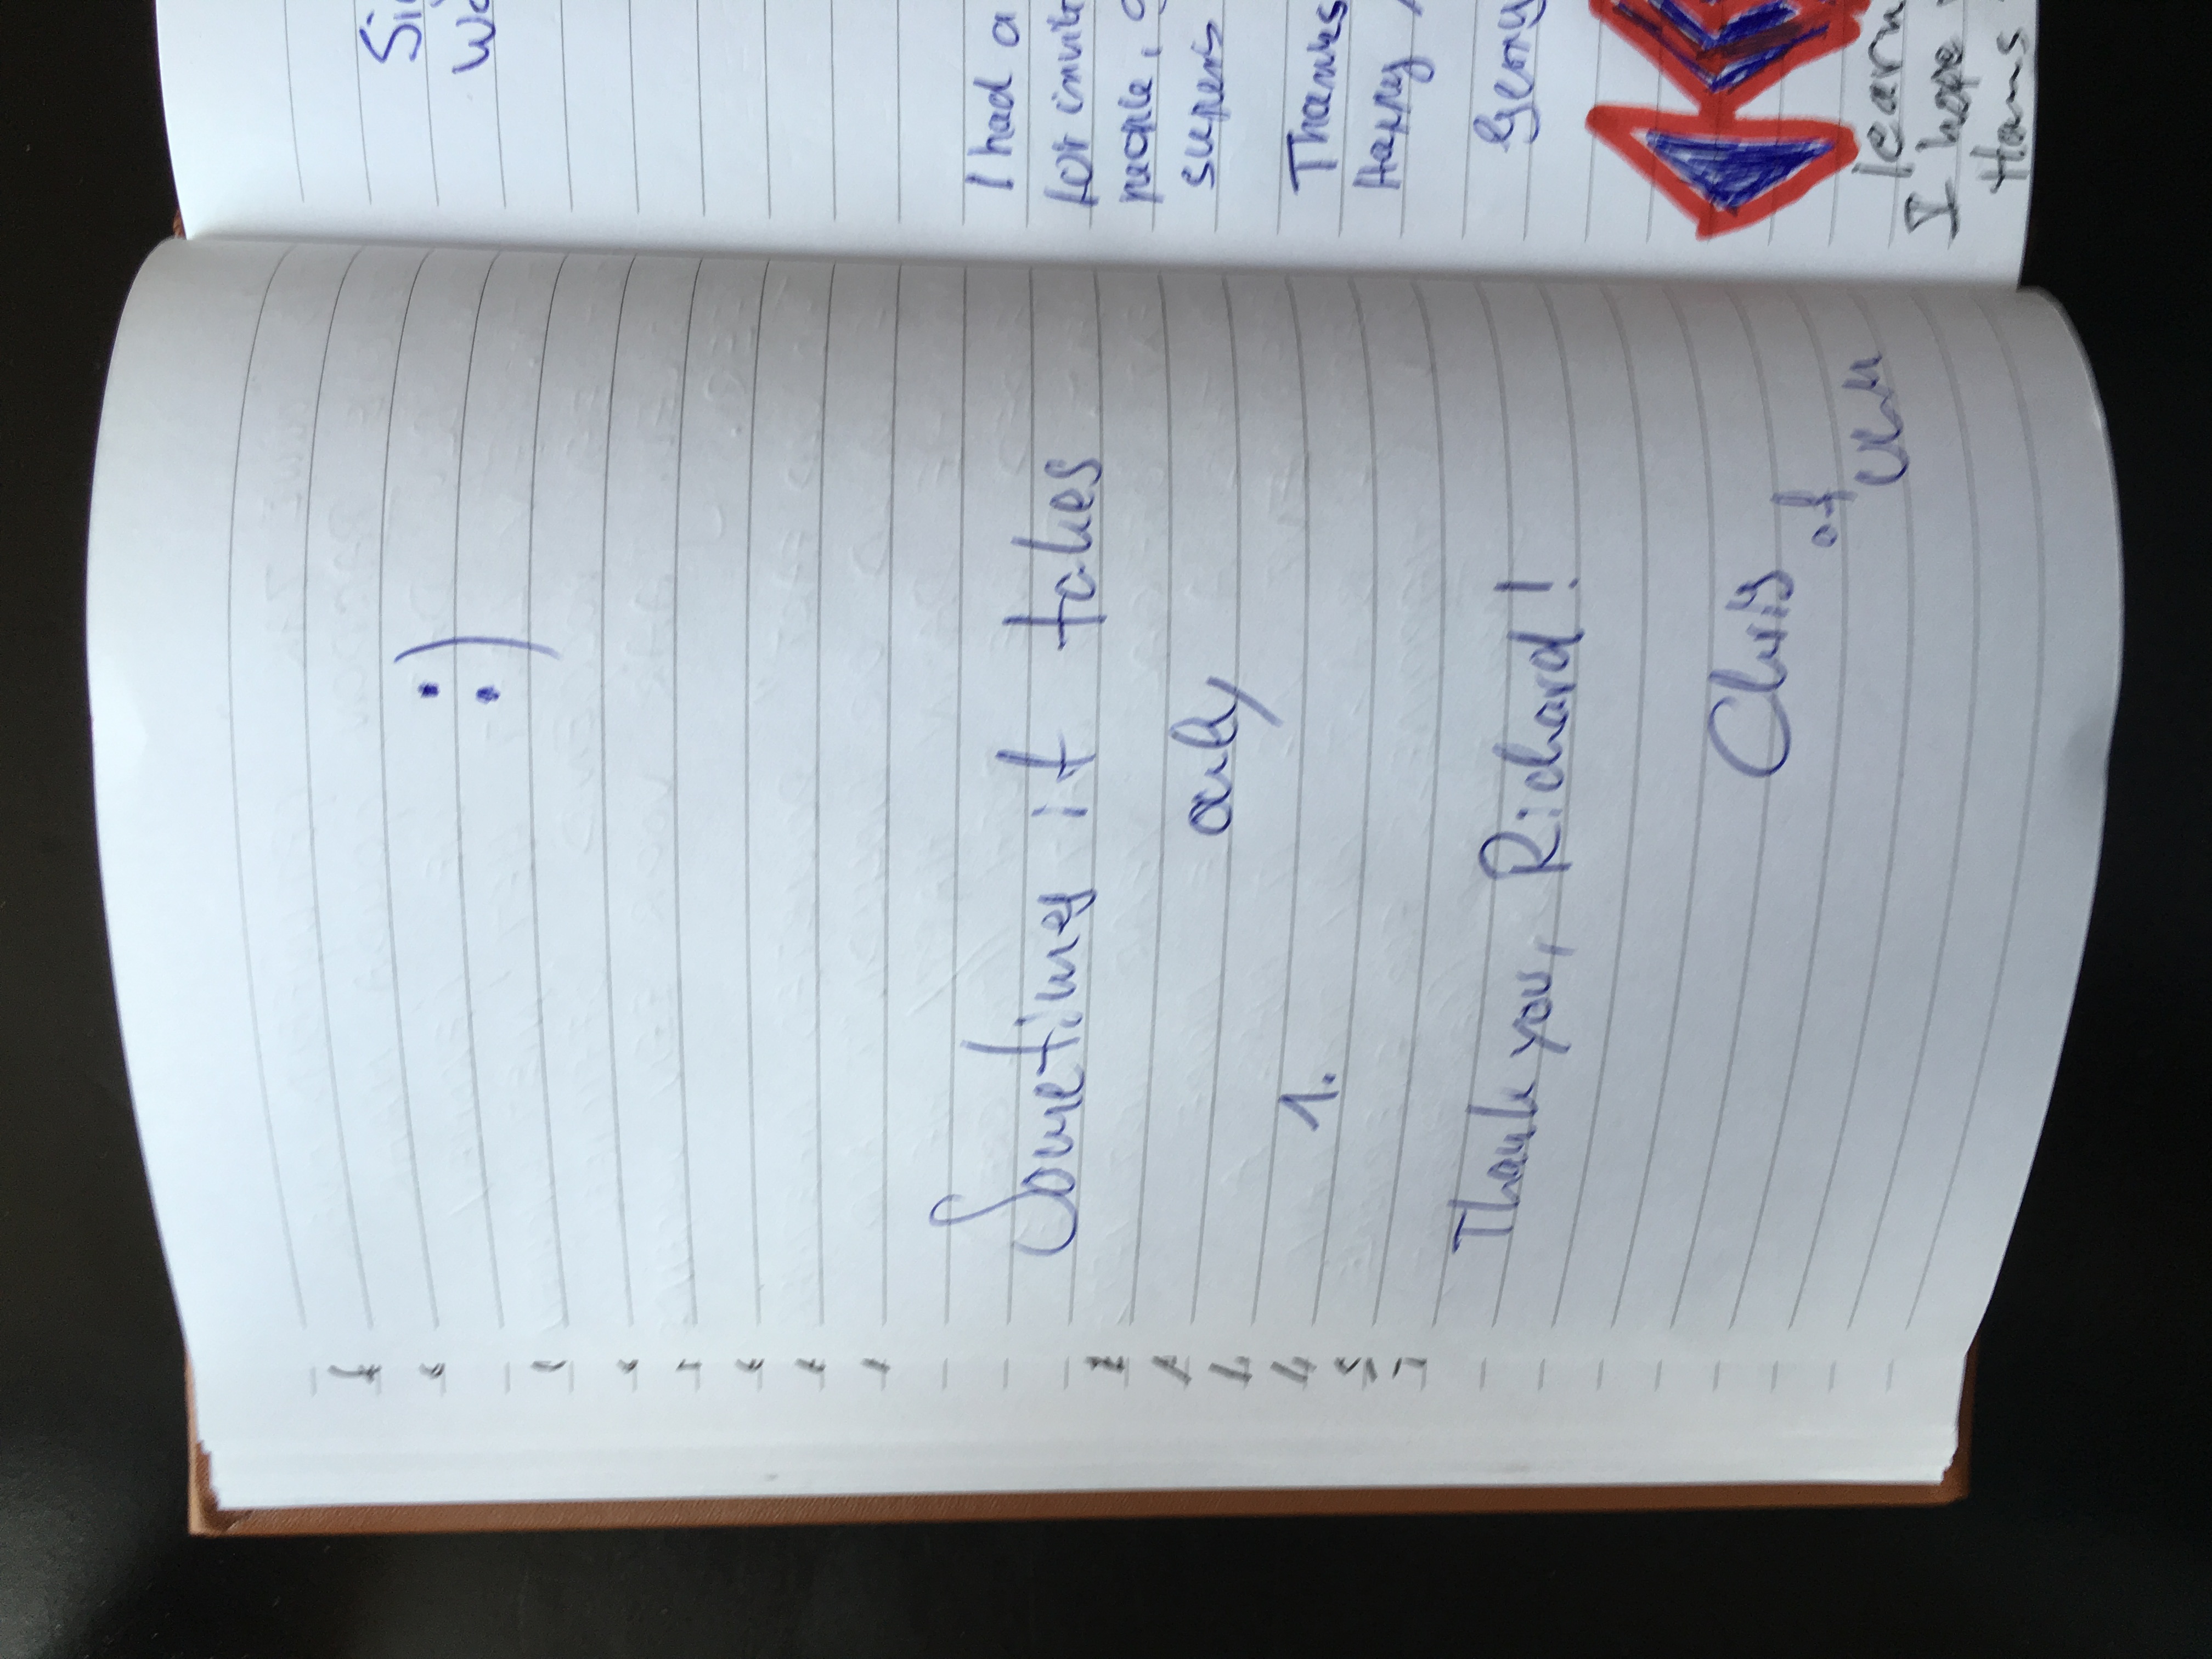 :)
Sometimes it takes
only
1.
Thank you, Richard!
Chris
of
I had a
for invit
people,
supers
Thanks
Happy
Georg
learn
I hope
Hans